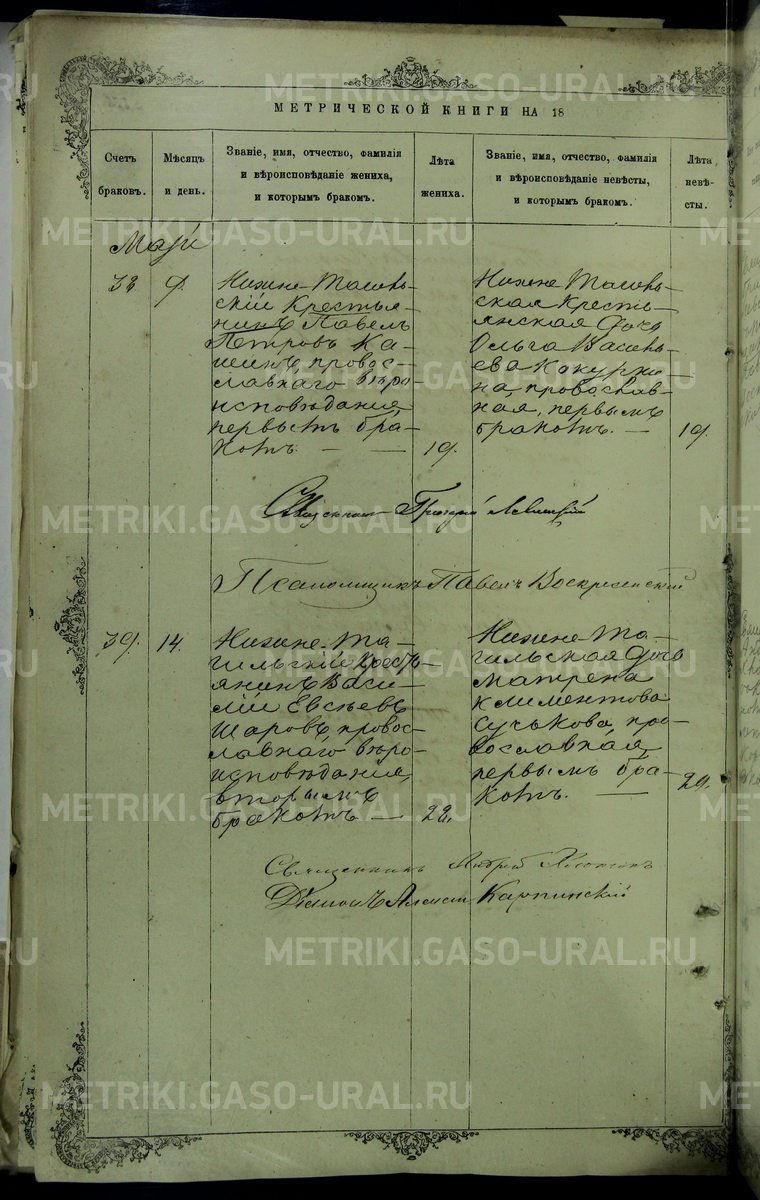 МЕТРИЧЕСКОЙ КНИГИ НА 18
Счетъ
браковъ.
Мѣсяцъ
и день.
Званіе, имя, отчество, фамилія
и вѣроисповѣданіе жениха,
и которымъ бракомъ.
Лѣта
жениха.
Званіе, имя, отчество, фамилія
и вѣроисповѣданіе невѣсты,
и которымъ бракомъ.
Лѣта
невѣ-
сты.
Май
38
9.
Нижне-Тагиль-
скій Крестья-
нинъ Павелъ
Петровъ Ка-
шинъ, правос-
лавнаго вѣро-
исповѣданія,
первымъ бра-
комъ.
19.
Нижне-Тагиль-
ская Кресть-
янская дочь
Ольга Василь-
ева Кокурки-
на, православ-
ная, первымъ
бракомъ.
19.
Священникъ Григорій Левицкій
Псаломщикъ Павелъ Воскресенскій
39.
14.
Нижне-Та-
гильскій Крест-
янинъ Васи-
лій Евсѣевъ
Шаровъ, правос-
лавнаго вѣро-
исповѣданія,
вторымъ
бракомъ
22.
Нижне-Та-
гильская дочь
Матрена
Климентова
Сучькова, пра-
вославная,
первымъ бра-
комъ.
20.
Священникъ
Діаконъ Алексій Карпинскій
METRIKI.GASO-URAL.RU